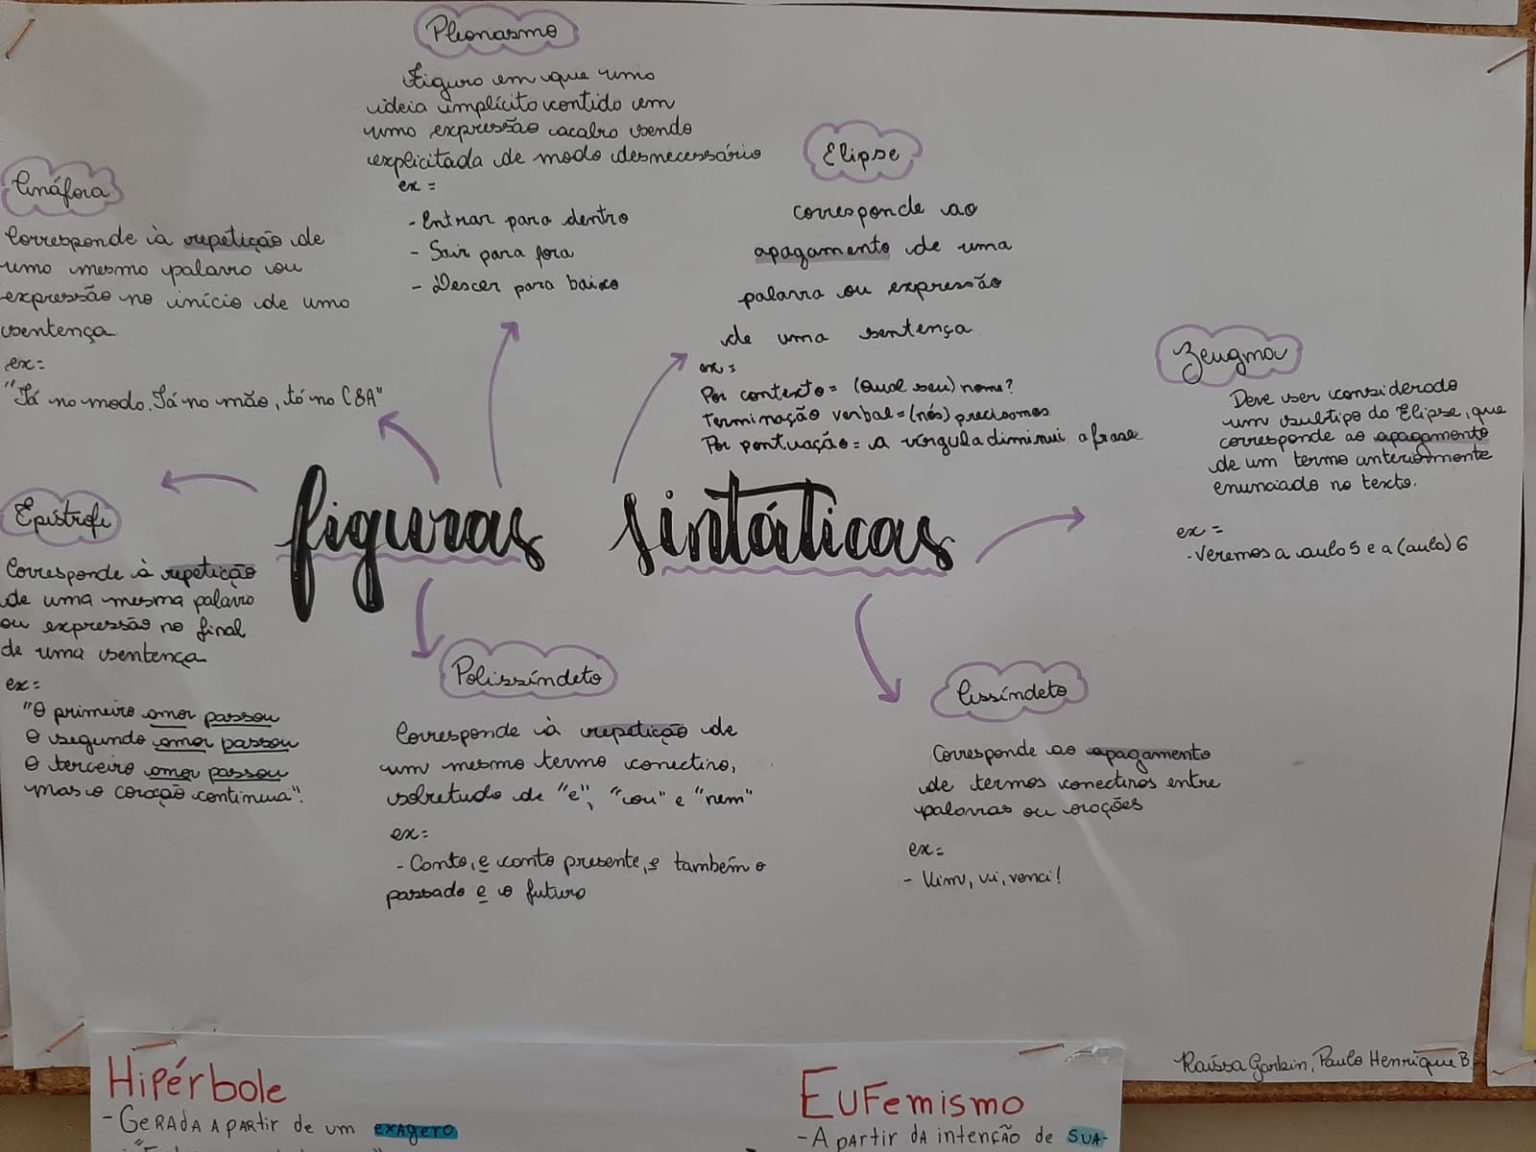 Pleonasmo
Figura em que uma
ideia implícita contida em
uma expressão acaba sendo
explicitada de modo desnecessário
ex =
- Entrar para dentro
- Sair para fora
- Descer para baixo
Elipse
corresponde ao
apagamento de uma
palavra ou expressão
de uma sentença
ex =
Por contexto = (Qual seu) nome?
Terminação verbal = (nós) precisamos
Por pontuação = a vírgula diminui a frase
Anáfora
Corresponde à repetição de
uma mesma palavra ou
expressão no início de uma
sentença
ex =
"Tá na moda. Tá na mão, tá na C&A"
Zeugma
Deve ser considerado
um subtipo da Elipse, que
corresponde ao apagamento
de um termo anteriormente
enunciado no texto.
ex =
- Veremos a aula 5 e a (aula) 6
figuras sintáticas
Epístrofe
Corresponde à repetição
de uma mesma palavra
ou expressão no final
de uma sentença
ex =
"O primeiro amor passou
O segundo amor passou
O terceiro amor passou
mas o coração continua".
Polissíndeto
Corresponde à repetição de
um mesmo termo conectivo,
sobretudo de "e", "ou" e "nem"
ex =
- Canto, e canto presente, e também o
passado e o futuro
Assíndeto
Corresponde ao apagamento
de termos conectivos entre
palavras ou orações
ex =
- Vim, vi, venci!
Raíssa Garbin, Paulo Henrique B
Hipérbole
- Gerada a partir de um exagero
Eufemismo
- A partir da intenção de sua-